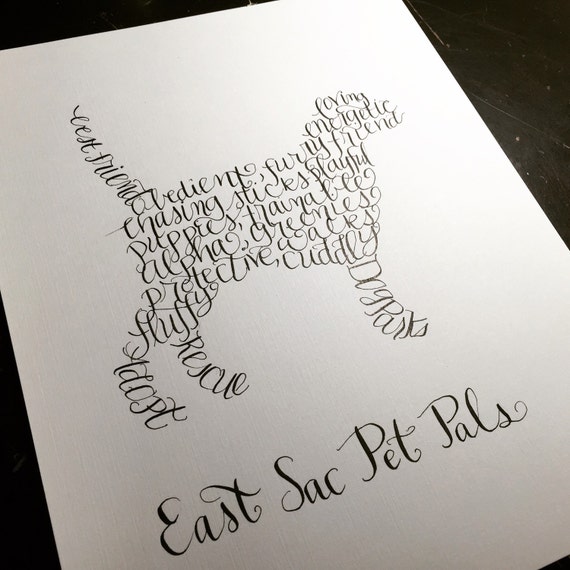 best friend
loving
energetic
furry friend
obedient, playful
chasing sticks
puppies, trainable
alpha, greenies
protective, walks
cuddly
fluffy
Dog Parks
Rescue
Adopt
East Sac Pet Pals